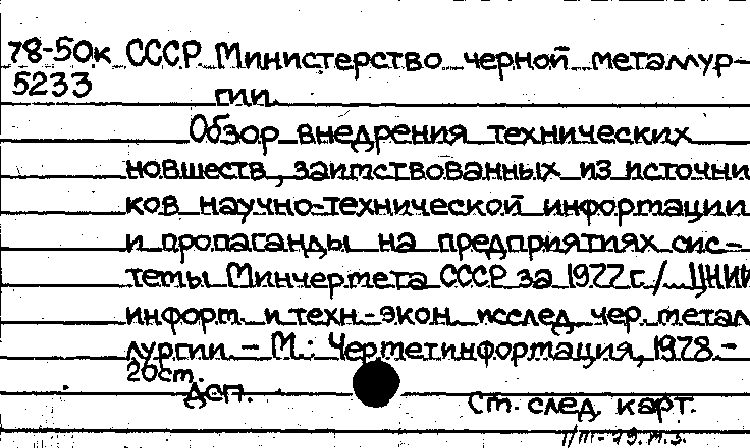 78-50к СССР Министерство черной металлур-
5233 гии.
Обзор внедрения технических
новшеств, заимствованных из источни
ков научно-технической информации
и пропаганды на предприятиях сис-
темы Минчермета СССР за 1977 г. / ЦНИИ
информ. и техн.-экон. исслед. чер. метал
лургии. - М.: Черметинформация, 1978. -
20 см.
ДСП.
См. след. карт.